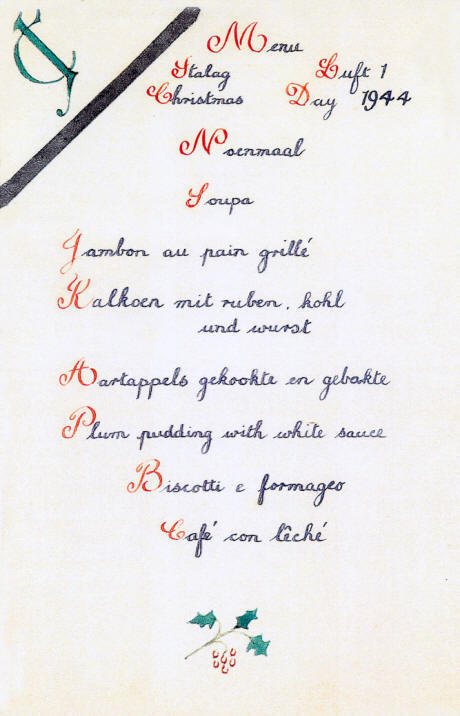 Menu
Stalag Luft 1
Christmas Day 1944
Noenmaal
Soupa
Jambon au pain grillé
Kalkoen mit ruben, kohl
und wurst
Aartappels gekookte en gebakte
Plum pudding with white sauce
Biscotti e formageo
Café con lêché